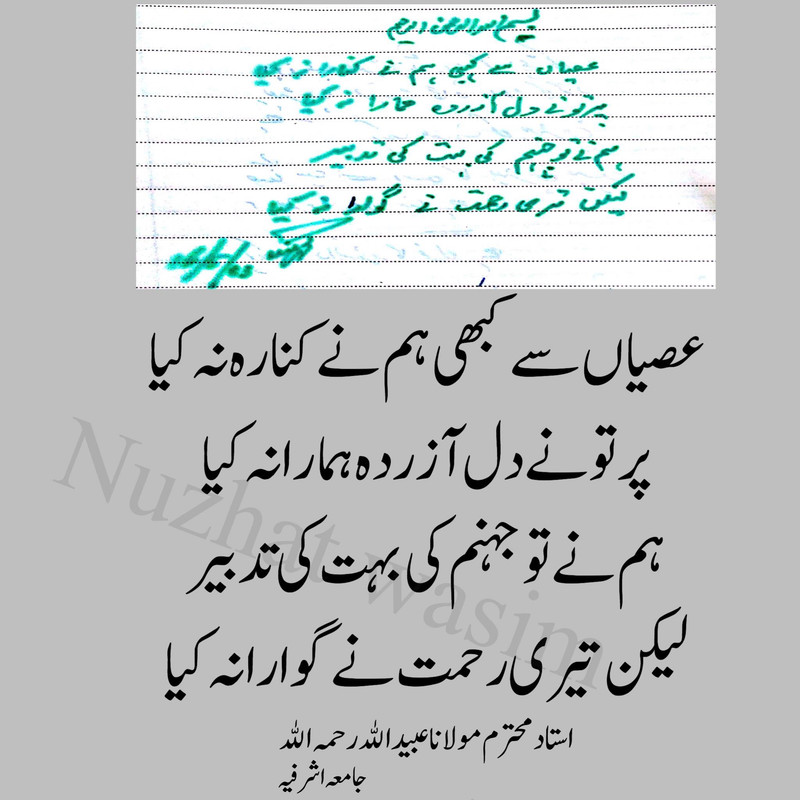 بسم اللہ الرحمن الرحیم
عصیاں سے کبھی ہم نے کنارا نہ کیا
پر تو نے دل آزردہ ہمارا نہ کیا
ہم نے تو جہنم کی بہت کی تدبیر
لیکن تری رحمت نے گوارا نہ کیا
عصیاں سے کبھی ہم نے کنارہ نہ کیا
پر تو نے دل آزردہ ہمارا نہ کیا
ہم نے تو جہنم کی بہت کی تدبیر
لیکن تیری رحمت نے گوارا نہ کیا
استاد محترم مولانا عبیداللہ رحمہ اللہ
جامعہ اشرفیہ
Nuzhat wasim